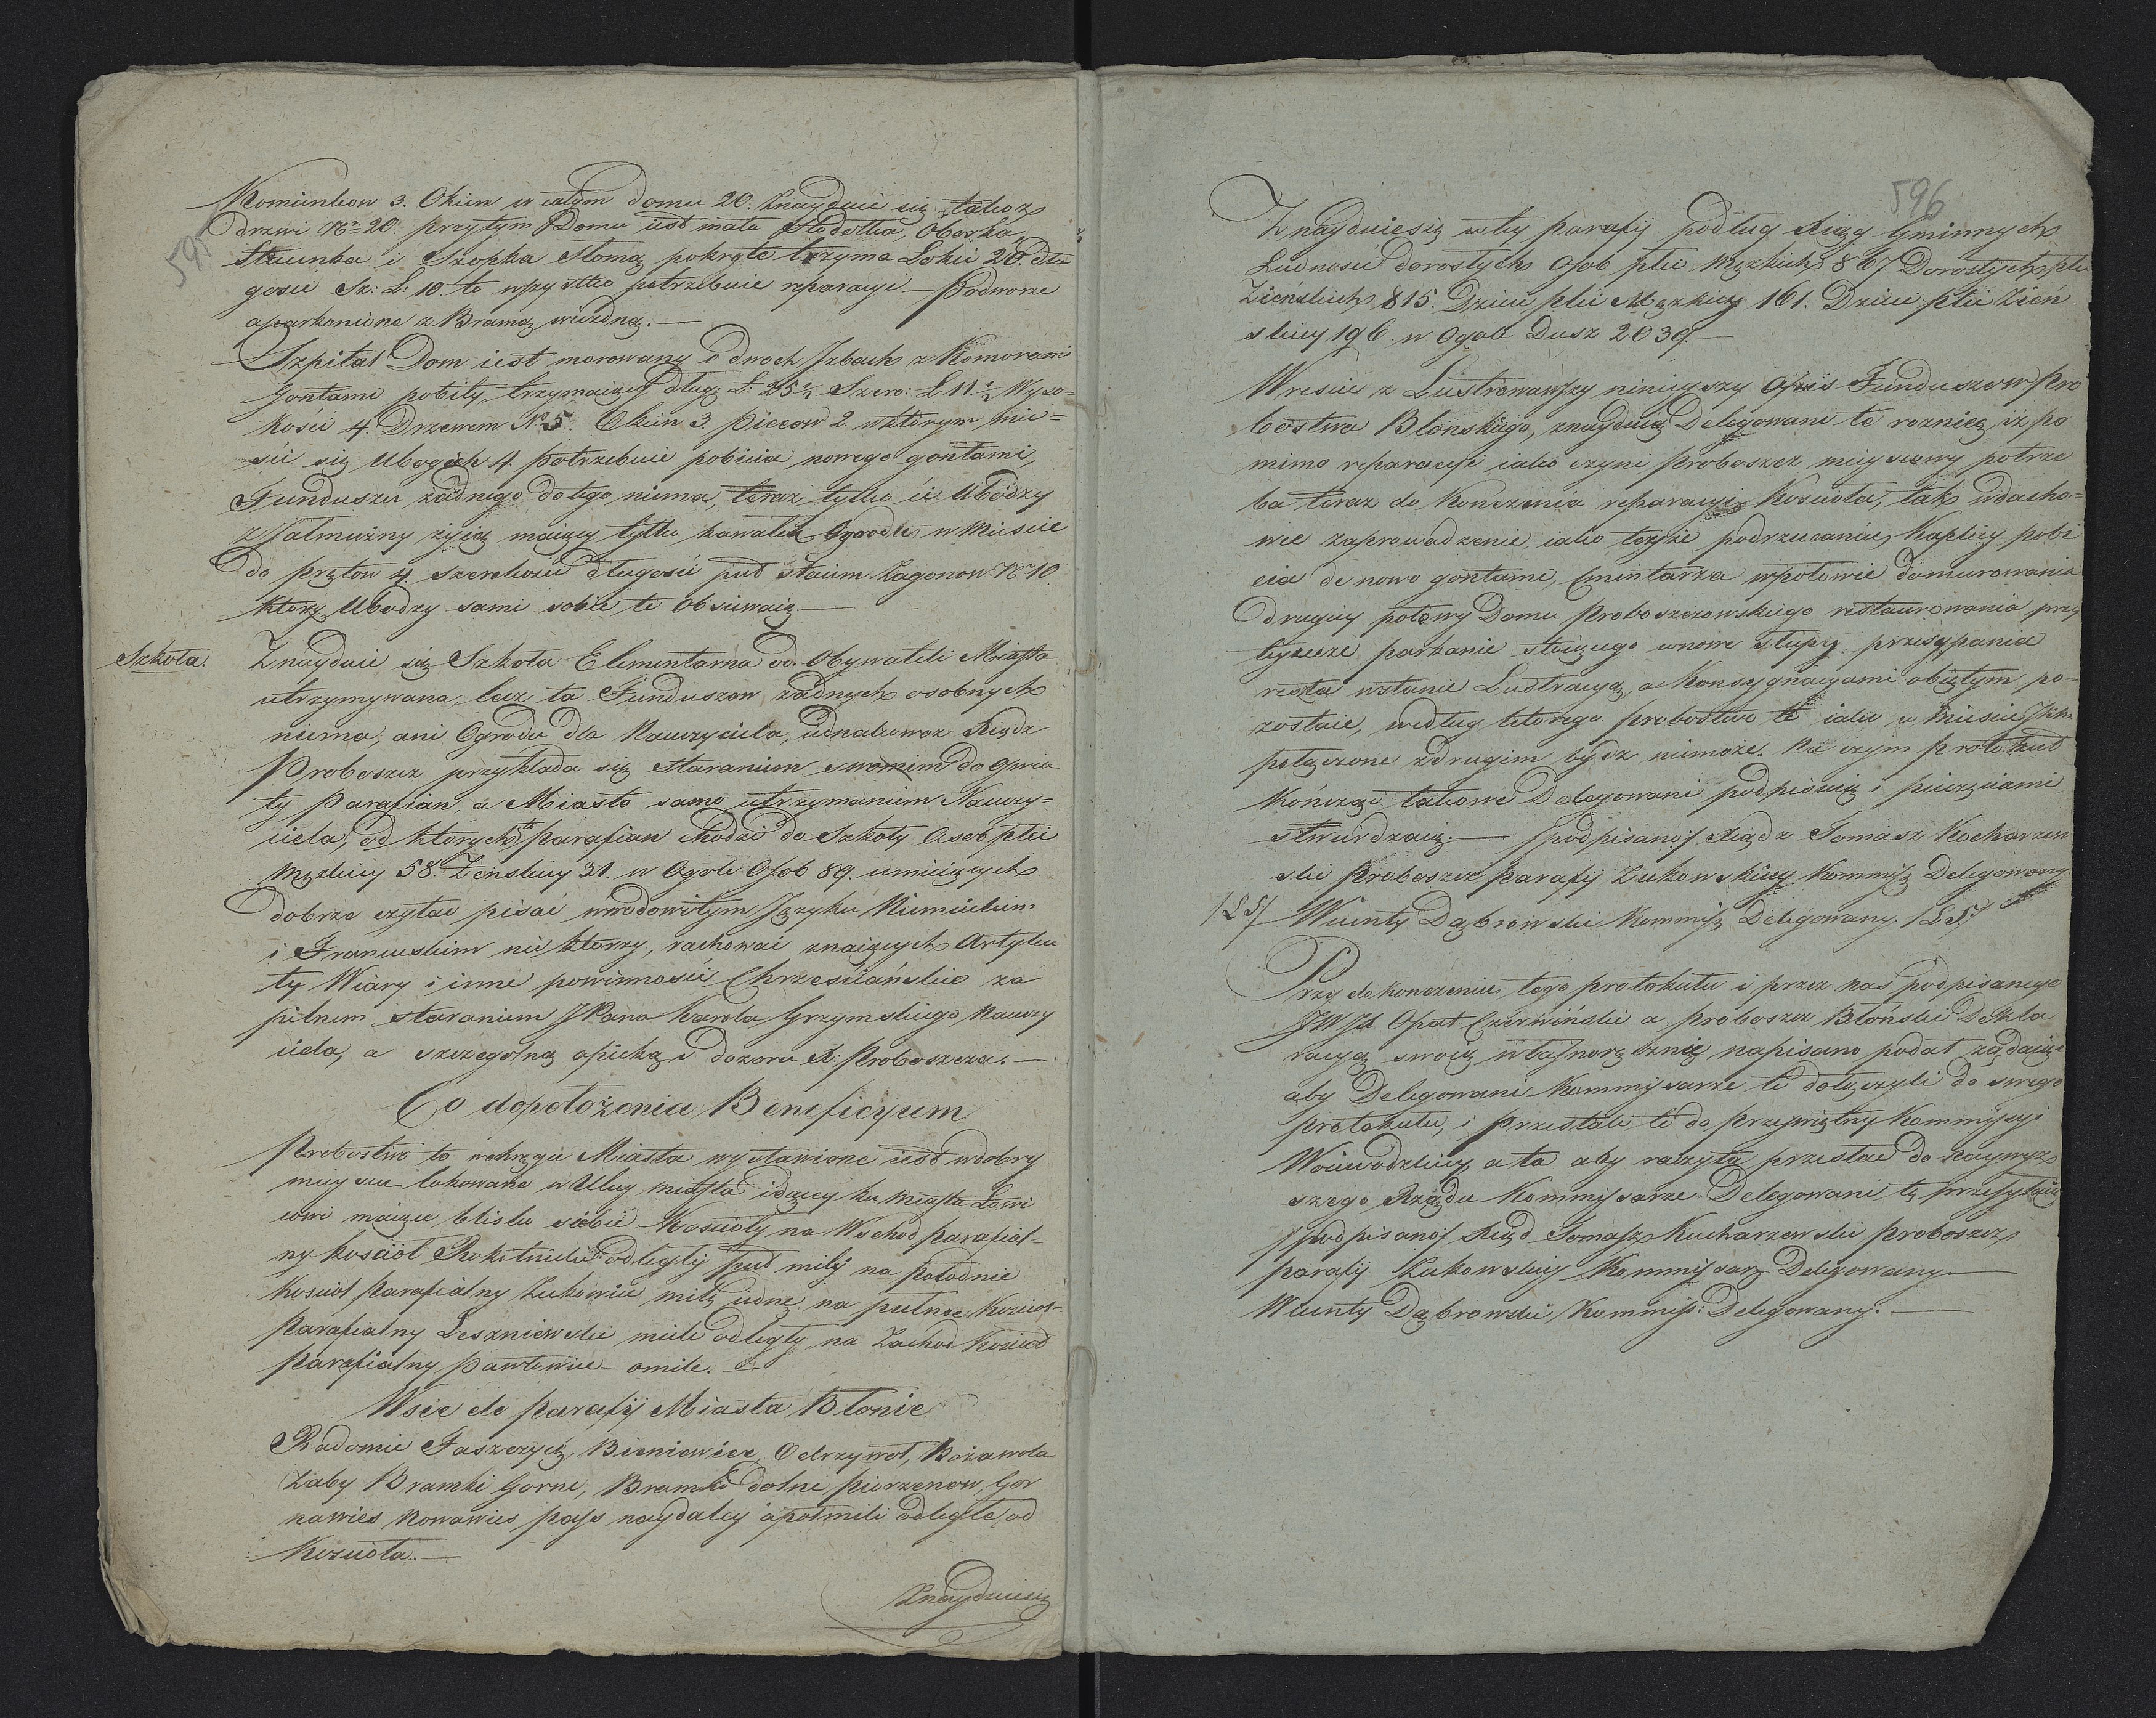 595
Kominkow 3. Okien w całym domu 20. znayduie się, także
drzwi Nr 20. przytym Domu iest mała Stodołka, Oborka,
Staienka i Szopka Słomą pokryte trzyma Łokci 20. dłu
gości Sz: Ł: 10. to wszystko potrzebuie reparacyi — Podworze
oparkonione z Bramą wiezdną. —
Szpital Dom iest morowany o dwoch Jzbach z Komorami
Gontami pobity, trzymaiący dług: Ł: 25½ Szero: Ł 11.½ Wyso=
kości 4. Drzewem Nr 5. Okien 3. piecow 2. wktorym mie=
ści się Ubogich 4. potrzebuie pobicia nowego gontami,
Funduszu żadnego do tego niema, teraz tylko ci Ubodzy
z Jałmużny żyią maiący tylko kawałek Ogrodu w Mieście
do prętow 4. szerokości długości puł staiem Zagonow Nr 10.
ktory Ubodzy sami sobie to Obsiewaią. —
Szkoła. Znayduie się Szkoła Elementarna od Obywateli Miasta
utrzymywana, lecz ta Funduszow żadnych osobnych
niema, ani Ogrodu dla Nauczyciela, iednakowoż Xiądz
Proboszcz przykłada się staraniem swoim do Oświa
ty Parafian a Miasto samo utrzymaniem Nauczy=
ciela, od ktorych to parafian chodzi do Szkoły Osob płci
Męzkiey 58. Żeńskiey 31. w Ogole Osob 89. umieiących
dobrze czytać pisać wrodowitym Języku Niemieckim
i Francuskim nie ktorzy, rachować znaiących Artyku
ły Wiary i inne powinności Chrześciańskie za
pilnem staraniem JPana Karola Grzymskiego Nauczy
ciela, a szczegolną opieką i dozoru X: Proboszcza. —
Co dopołożenia Beneficyum
Probostwo to wokręgu Miasta wystawione iest wdobry
mieyscu lokowane w Ulicy miasta idącey ku Miastu Łowi
czowi maiące blisko siebie Kościoły na Wschod parafial=
ny kościoł Rokitnicki odległy puł mily na południe
Kościoł Parafialny Żukowie milę iedne na pułnoc Kościoł=
Parafialny Leszniewski mile odległy na Zachod Kościoł
Parafialny Pawłowice o mile.
Wsie do parafij Miasta Błonie
Radonie Faszczyce, Bieniewice, Odrzywoł, Bożawola
Żaby Bramki Gorne, Bramki dolne Piorzenow, Gor
nawieś Nowawieś Pass naydaley o połmili odległe od
Kościoła. —
Znayduiesię
596
Znayduiesię w tey parafij podług Xiąg Gminnych
Ludności dorosłych Osob płci Męzkich 867. Dorosłych płci
Żieńskich 815. Dzieci płci Męzkiey 161. Dzieci płci Żień
skiey 196. w Ogole Dusz 2039. —
Wreście z Lustrowawszy ninieyszy Opis Funduszow Pro
bostwa Błonskiego, znayduią Delegowani te roznicę, iż po
mimo reparacyi iako czyni Proboszcz mieyscowy potrze
ba teraz do konczenia reparacyi Kościoła, tak wdacho=
wce zaprowadzenie, iako toż iż podrzucanie, Kaplicy pobi
cia de nowo gontami, Cmintarza wpołowie domurowania
drugiey połowy Domu Proboszczowskiego restaurowania przy
tymże parkanie stoiącego wnowe słupy przesypania
reszta wstanie Lustracyą, a Konsygnacyami obiętym po=
zostaie, według ktorego probostwo to iako w Mieście
połączone zdrugim bydz niemoże. Na czym protokuł
kończąc takowe Delegowani podpisuią i pieczęciami
stwierdzaią. — /podpisano/ Xiądz Tomasz Kucharzew
ski Proboszcz parafij Żukowskiey Kommiss: Delegowany
/LS/ Wicenty Dąbrowski Kommiss: Delegowany. /LS/
Przy dokonczeniu tego protokułu i przez nas podpisanego
JWJX Opat Czerwiński a proboszcz Błoński Dekla
racyą swoią własnoręcznię napisano podał żądaiąc
aby Delegowani Kommissarze te dołączyli do swego
protokułu, i przesłali te do przeswietny Kommissyi
Woiewodzkiey, a ta aby raczyła przesłać do naywyż
szego Rządu Kommissarze Delegowani tę przesyłaią
/podpisano/ Xiądz Tomasz Kucharzewski Proboszcz
parafij Żukowskiey Kommissarz Delegowany —
Wicenty Dąbrowski Kommiss: Delegowany. —